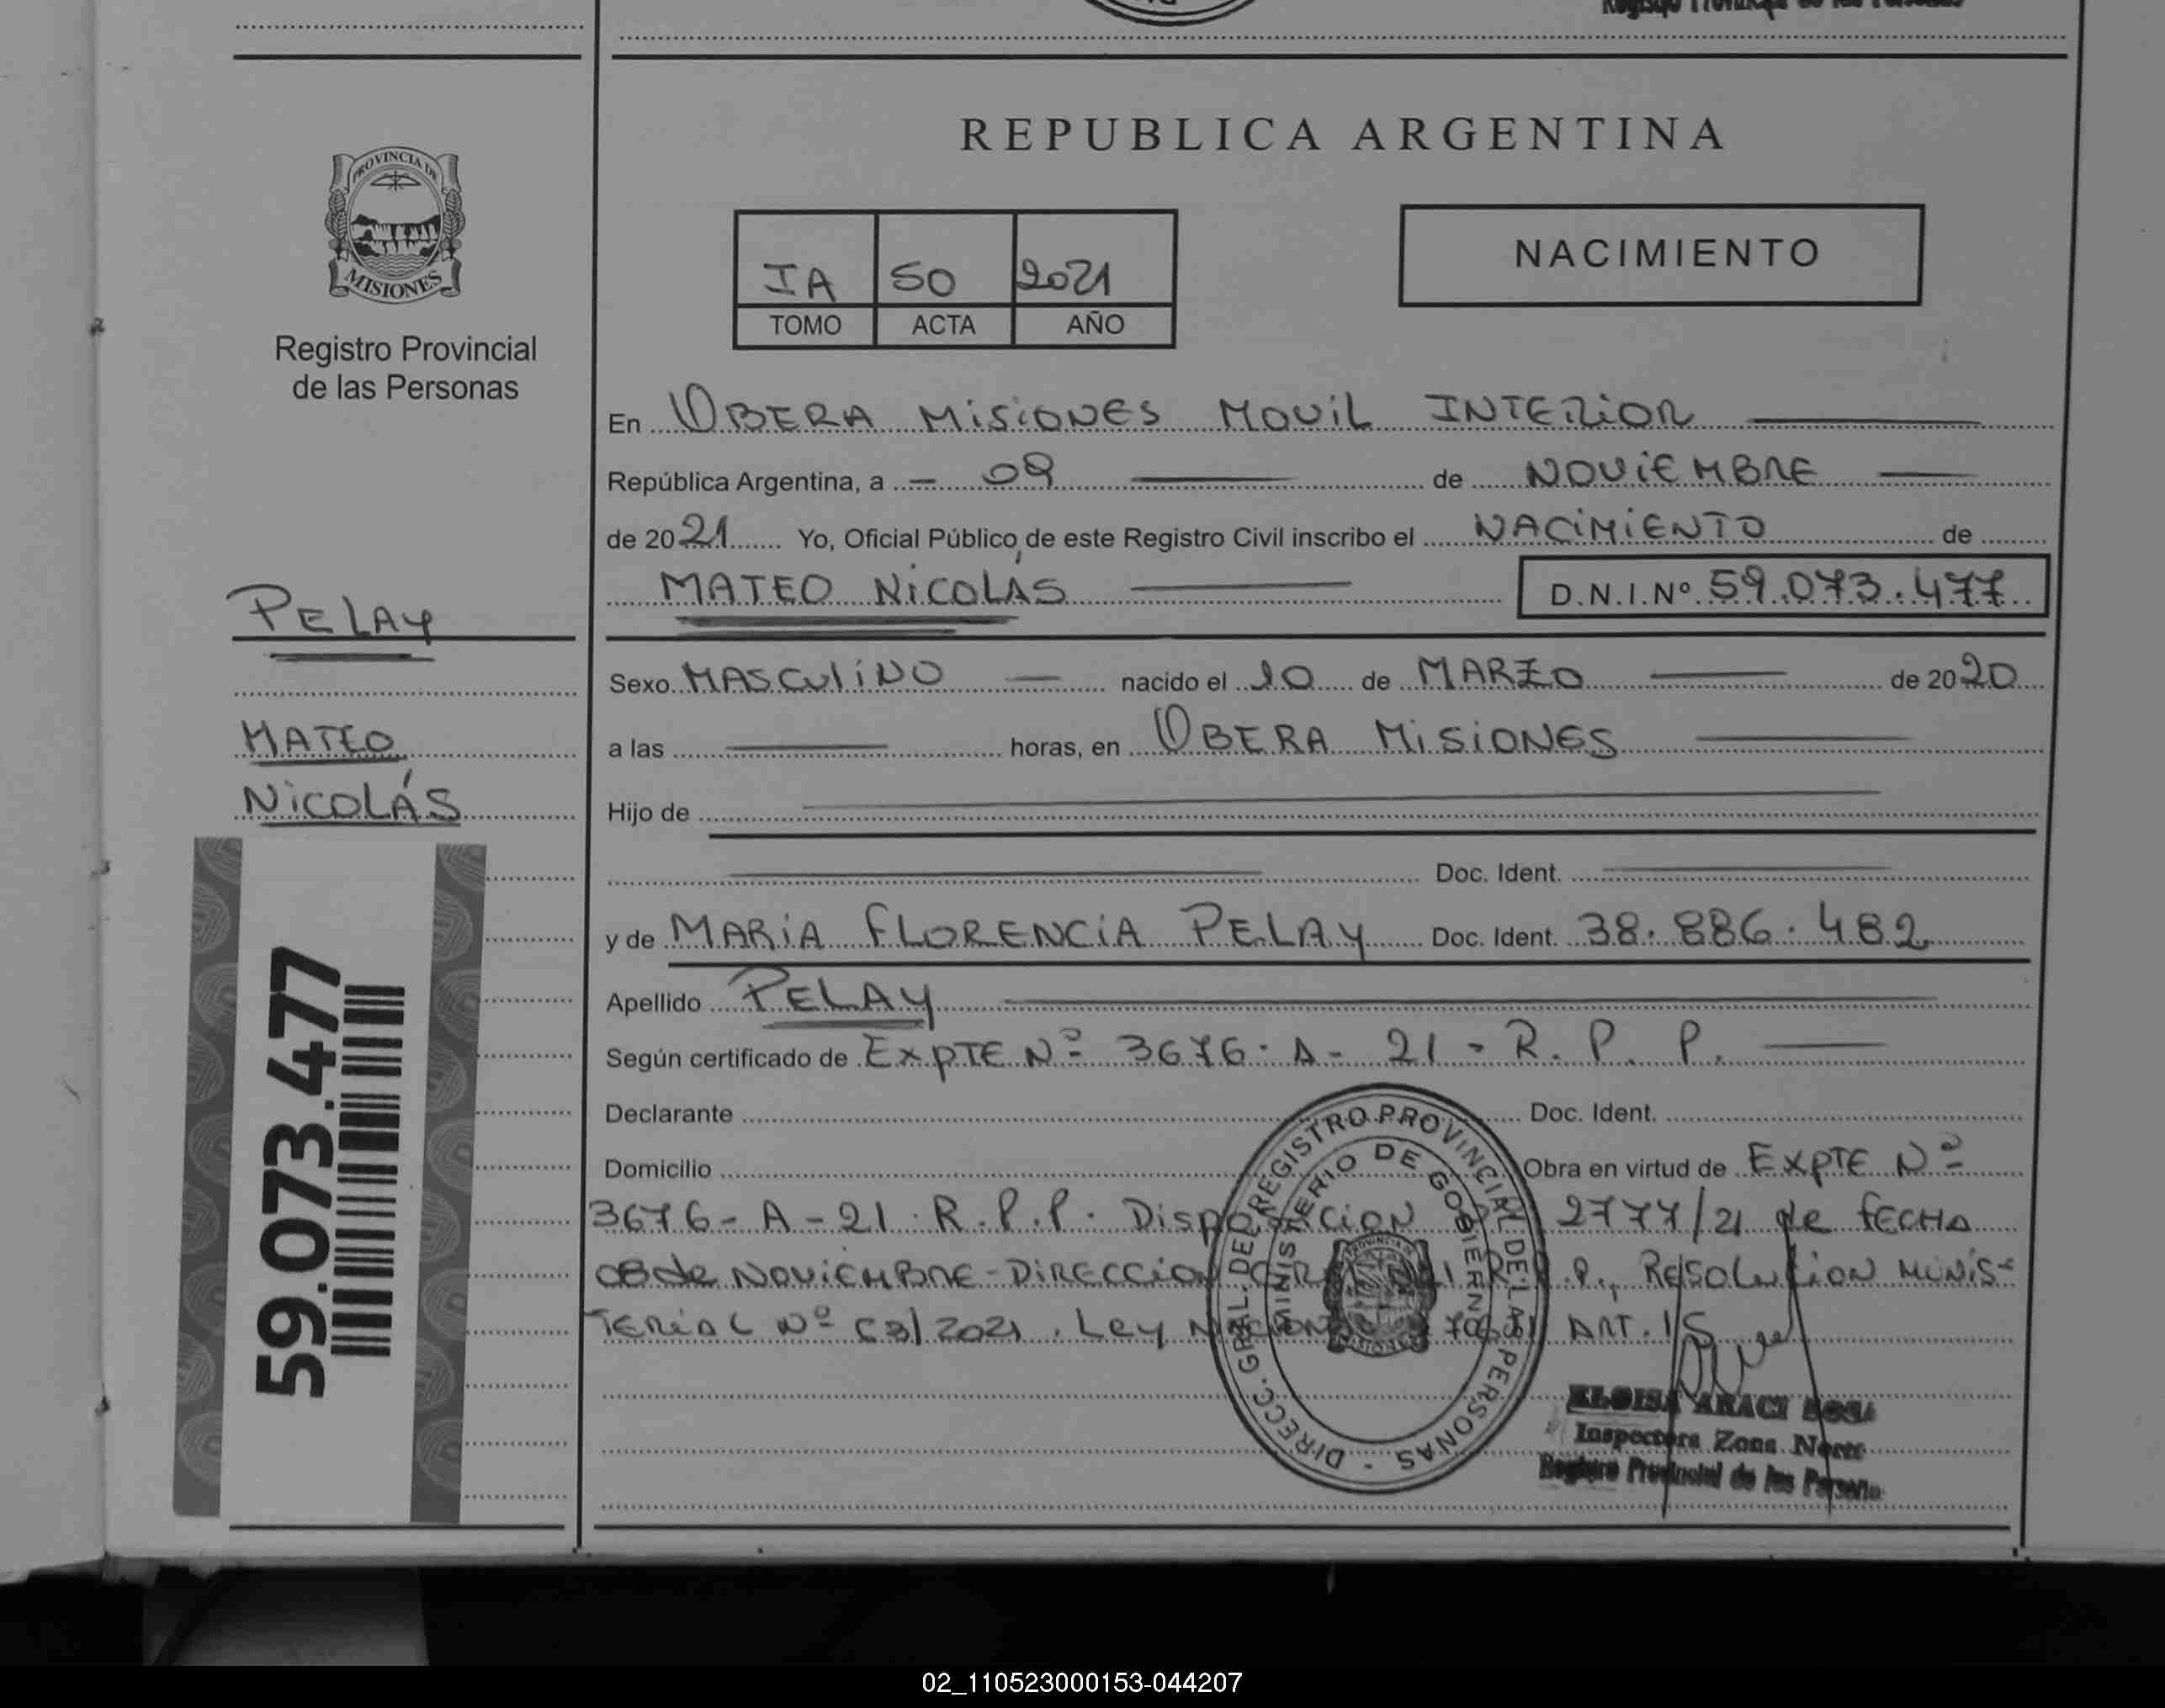 REPUBLICA ARGENTINA
PROVINCIA DE
MISIONES
Registro Provincial
de las Personas
IA 50 2021
TOMO ACTA AÑO
NACIMIENTO
En OBERA MISIONES MOVIL INTERIOR
República Argentina, a - 09 de NOVIEMBRE
de 2021 Yo, Oficial Público de este Registro Civil inscribo el NACIMIENTO de
MATEO NICOLÁS D.N.I.Nº 59.073.477
PELAY
MATEO
NICOLÁS
59.073.477
Sexo MASCULINO nacido el 10 de MARZO de 2020
a las horas, en OBERA MISIONES
Hijo de
Doc. Ident.
y de MARIA FLORENCIA PELAY Doc. Ident. 38.886.482
Apellido PELAY
Según certificado de EXPTE Nº 3676-A-21-R.P.P.
Declarante Doc. Ident.
Domicilio Obra en virtud de EXPTE Nº
3676-A-21.R.P.P. Disposicion 2777/21 de fECHA
08 de NOVIEMBRE-DIRECCION R.P.P., RESOLUCION MINIS-
TERIAL Nº 2021. Ley ART. 15
DIRECC. GRAL. DEL REGISTRO PROVINCIAL DE LAS PERSONAS -
MINISTERIO DE GOBIERNO
ELOISA ARACI
Inspectora Zona Norte
Registro Provincial de las Persona
02_110523000153-044207